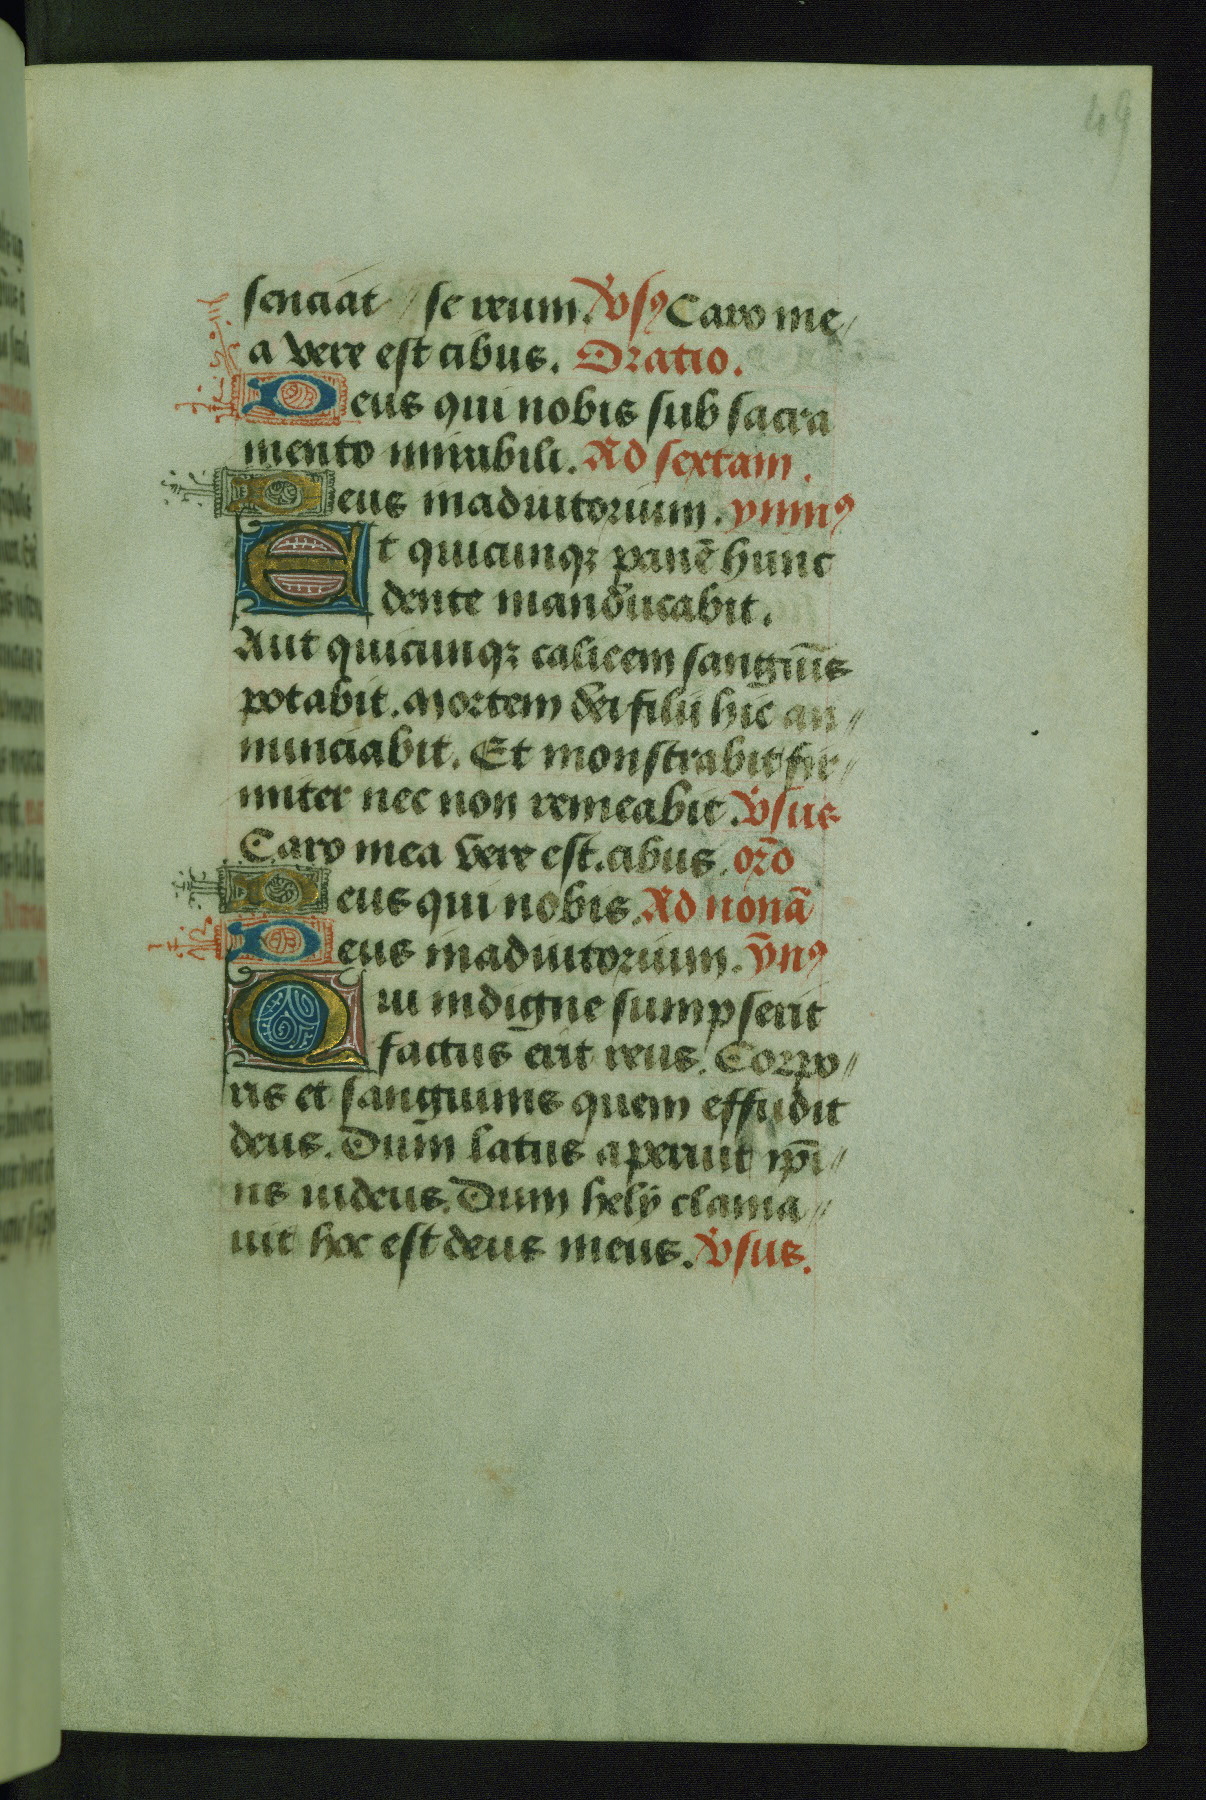 49
senciat se reum. Vs9 Caro me
a vere est cibus. Oratio.
Deus qui nobis sub sacra
mento mirabili. Ad sextam.
Deus in adiutorium. ymn9
Et quicunqz panē hunc
dente manducabit.
Aut quicunqz calicem sanguīs
potabit. Mortem dei filii hic an
nunciabit. Et monstrabit fir
miter nec non remeabit. Vsus
Caro mea vere est. cibus. orō
Deus qui nobis. Ad nonā
Deus in adiutorium. ȳn9
Qui indigne sumpserit
factus erit reus. Corpo
ris et sanguinis quem effudit
deus. Dum latus aperuit
us iudeus. Dum hely clama
uit hoc est deus meus. Vsus.